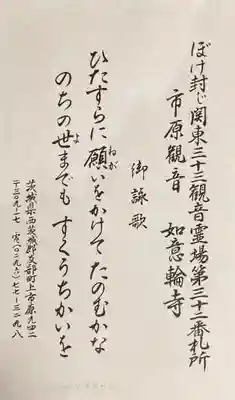 ぼけ封じ関東三十三観音霊場第三十二番札所
市原観音 如意輪寺
御詠歌
ひたすらに願いをかけてたのむかな
のちの世までも すくうちかいを
茨城県西茨城郡友部町上市原九四二
〒三〇九-一七 ℡(〇二九六)七七-三二九八